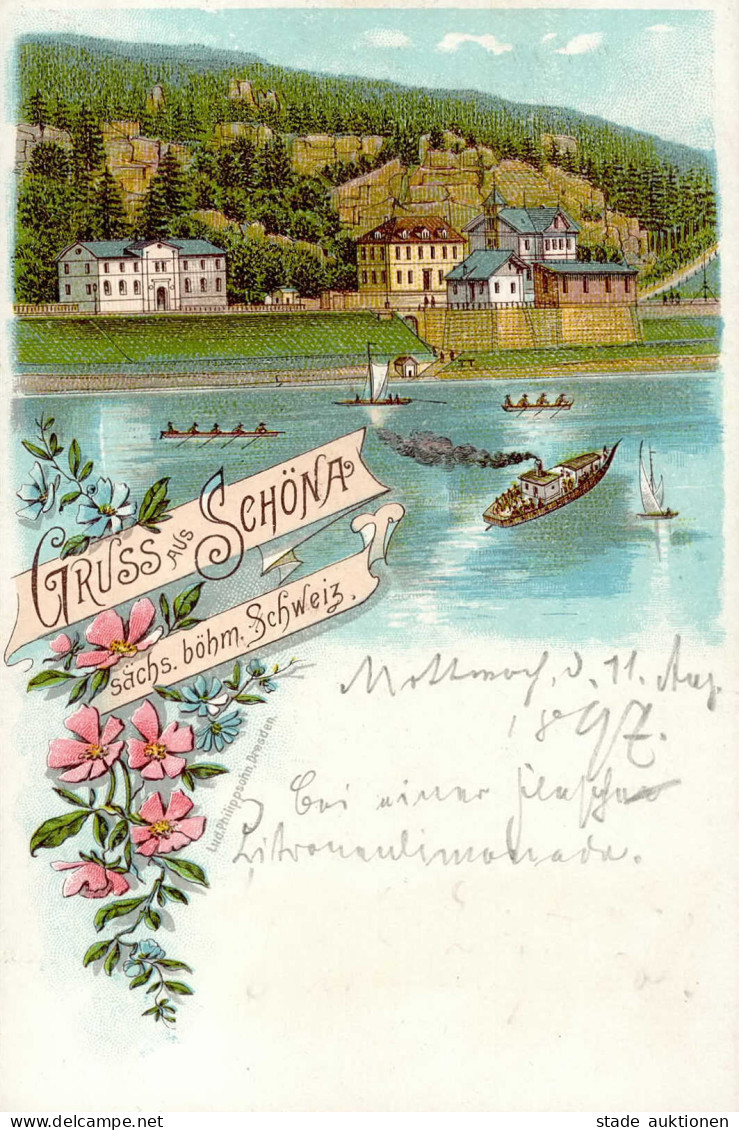 GRUSS AUS SCHÖNA
sächs. böhm. Schweiz.
Lud. Philippsohn, Dresden.
Mittwoch, d. 11. Aug.
1897.
Bei einer Flasche
Zitronenlimonade.
stade auktionen